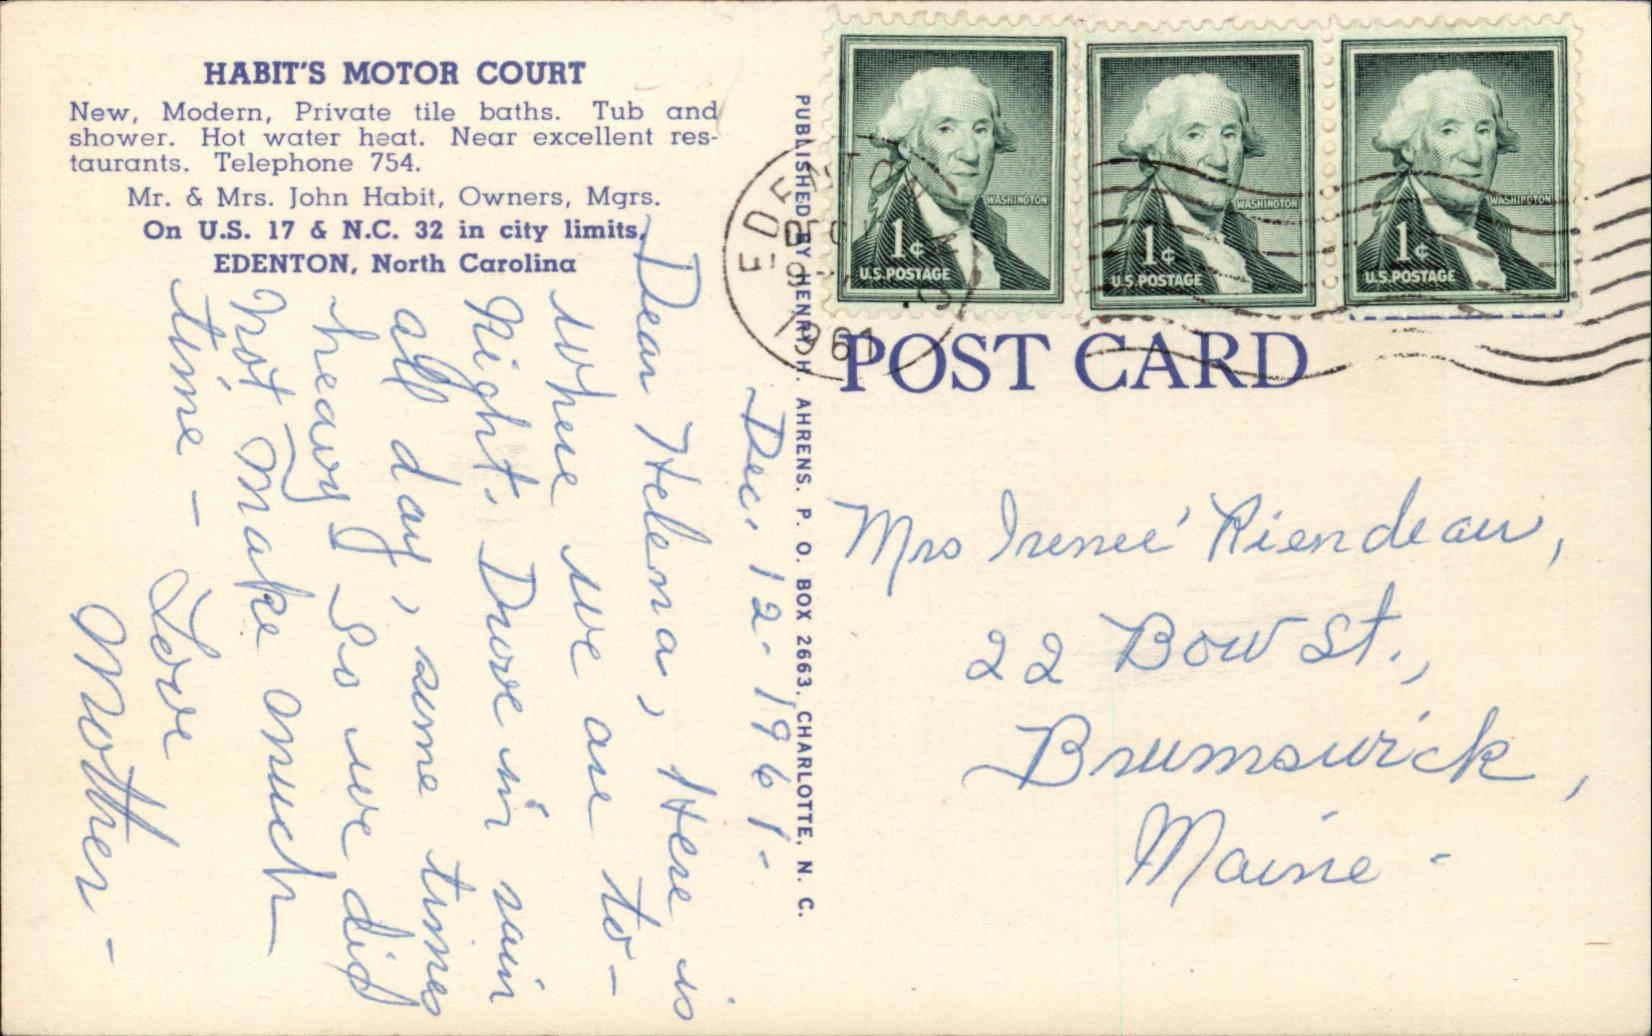 HABIT'S MOTOR COURT
New, Modern, Private tile baths. Tub and
shower. Hot water heat. Near excellent res-
taurants. Telephone 754.
Mr. & Mrs. John Habit, Owners, Mgrs.
On U.S. 17 & N.C. 32 in city limits,
EDENTON, North Carolina
Dec. 12-1961-
Dear Helena, Here is
where we are to-
Night. Drove in rain
all day, some times
heavy so we did
not make much
time - Love
Mother -
PUBLISHED BY HENRY H. AHRENS. P. O. BOX 2663. CHARLOTTE. N. C.
WASHINGTON
1¢
U.S. POSTAGE
WASHINGTON
1¢
U.S. POSTAGE
WASHINGTON
1¢
U.S. POSTAGE
EDENTON
DEC
1961
POST CARD
Mrs Ireneé Riendeau,
22 Bow St.,
Brunswick,
Maine -